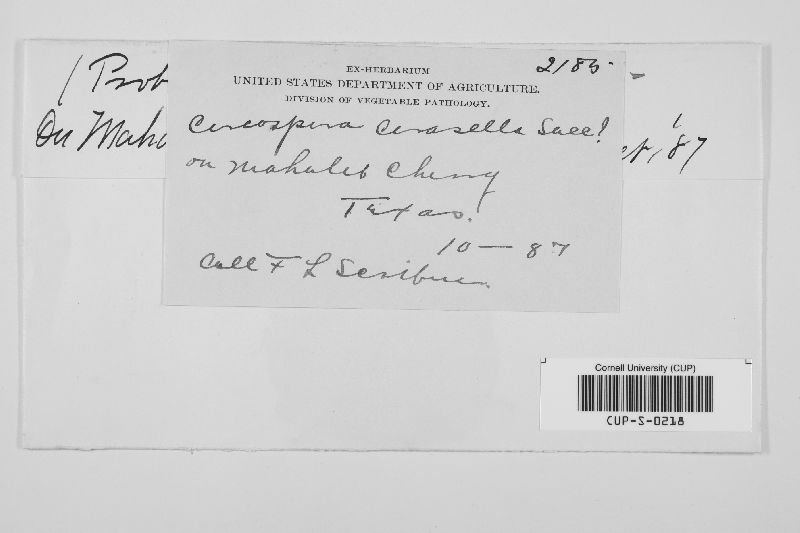 ( Prob
On Maha
t, '87
EX-HERBARIUM
2185
UNITED STATES DEPARTMENT OF AGRICULTURE.
DIVISION OF VEGETABLE PATHOLOGY.
Cercospora Cerasella Sacc?
on Mahaleb Cherry
Texas.
10 — 87
Coll F L Scribner.
Cornell University (CUP)
CUP-S-0218